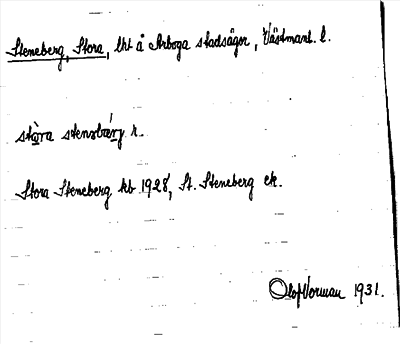 Steneberg, Stora, lht å Arboga stadsägor, Västmanl. l.
stora stensbärj r.
Stora Steneberg kb 1928, St. Steneberg ek.
Olof Vorman 1931.